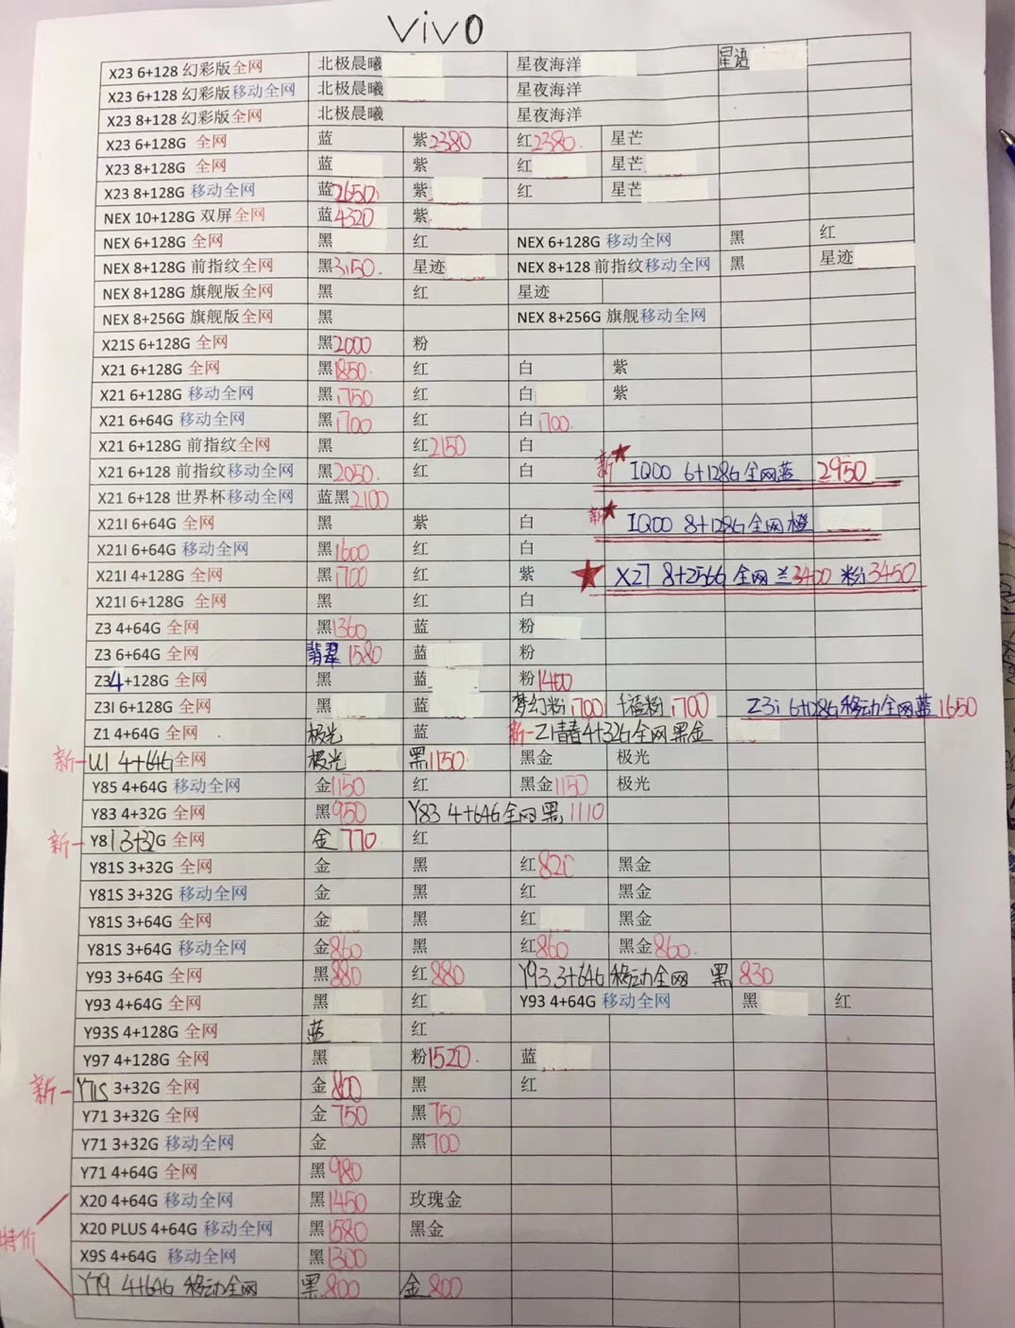 vivo
X23 6+128 幻彩版全网 北极晨曦 星夜海洋 星语
X23 6+128 幻彩版移动全网 北极晨曦 星夜海洋
X23 8+128 幻彩版全网 北极晨曦 星夜海洋
X23 6+128G 全网 蓝 紫2380 红2380. 星芒
X23 8+128G 全网 蓝 紫 红 星芒
X23 8+128G 移动全网 蓝2650 紫 红 星芒
NEX 10+128G 双屏全网 蓝4320 紫
NEX 6+128G 全网 黑 红 NEX 6+128G 移动全网 黑 红
NEX 8+128G 前指纹全网 黑3150. 星迹 NEX 8+128 前指纹移动全网 黑 星迹
NEX 8+128G 旗舰版全网 黑 红 星迹
NEX 8+256G 旗舰版全网 黑 NEX 8+256G 旗舰移动全网
X21S 6+128G 全网 黑2000 粉
X21 6+128G 全网 黑1850. 红 白 紫
X21 6+128G 移动全网 黑1750 红 白 紫
X21 6+64G 移动全网 黑1700 红 白1700.
X21 6+128G 前指纹全网 黑 红2150 白
X21 6+128 前指纹移动全网 黑2050. 红 白 新★ IQOO 6+128G全网蓝 2950
X21 6+128 世界杯移动全网 蓝黑2100
X21I 6+64G 全网 黑 紫 白 新★ IQOO 8+128G全网橙
X21I 6+64G 移动全网 黑1600 红 白
X21I 4+128G 全网 黑1700 红 紫 ★ X27 8+256G 全网 兰3400 粉3450
X21I 6+128G 全网 黑 红 白
Z3 4+64G 全网 黑1360 蓝 粉
Z3 6+64G 全网 翡翠 1580 蓝 粉
Z34+128G 全网 黑 蓝 粉1400
Z3I 6+128G 全网 黑 蓝 梦幻粉1700 千禧粉1700 Z3i 6+128G移动全网蓝1650
Z1 4+64G 全网 极光 蓝 新-Z1青春4+32G全网黑金
新-U1 4+64G全网 极光 黑1150. 黑金 极光
Y85 4+64G 移动全网 金1150 红 黑金1150 极光
Y83 4+32G 全网 黑950 Y83 4+64G全网黑 1110
新-Y81 3+32G 全网 金 770 红
Y81S 3+32G 全网 金 黑 红820 黑金
Y81S 3+32G 移动全网 金 黑 红 黑金
Y81S 3+64G 全网 金 黑 红 黑金
Y81S 3+64G 移动全网 金860 黑 红860 黑金860.
Y93 3+64G 全网 黑880 红880 Y93 3+64G移动全网 黑 830
Y93 4+64G 全网 黑 红 Y93 4+64G 移动全网 黑 红
Y93S 4+128G 全网 蓝 红
Y97 4+128G 全网 黑 粉1520. 蓝
新-Y71S 3+32G 全网 金800 黑 红
Y71 3+32G 全网 金750 黑750
Y71 3+32G 移动全网 金 黑700
Y71 4+64G 全网 黑980
X20 4+64G 移动全网 黑1450 玫瑰金
特价 X20 PLUS 4+64G 移动全网 黑1580 黑金
X9S 4+64G 移动全网 黑1300
Y79 4+64G 移动全网 黑800 金800